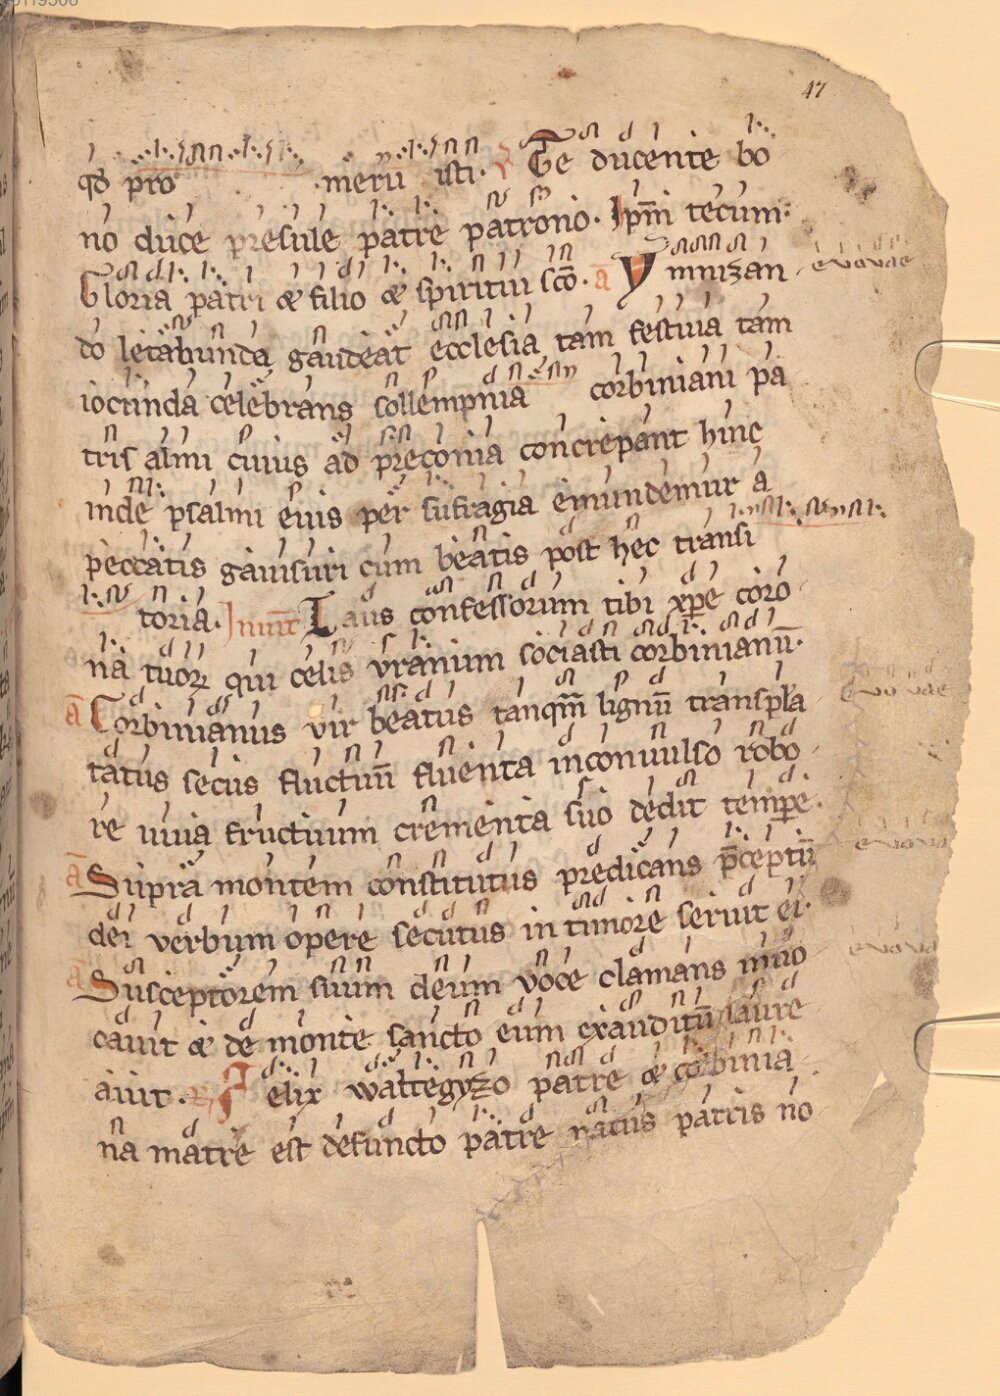 47
qd pro meru isti. V Te ducente bo
no duce presule patre patrono. Ipm̄ tecum.
Gloria patri & filio & spiritui scō. ā Ymnizan euouae
do letabunda gaudeat ecclesia tam festiua tam
iocunda celebrans sollempnia corbiniani pa
tris almi cuius ad preconia concrepant hinc
inde psalmi eius per sufragia emundemur a
peccatis gauisuri cum beatis post hec transi
toria. Inuit̄ Laus confessorum tibi xp̄e coro
na tuoꝝ qui celis vranium sociasti corbinianū.
ā Corbinianus vir beatus tanqm̄ lignū transpla euouae
tatus secus fluctuū fluenta inconuulso robo
re uiuia fructuum crementa suo dedit tempe.
ā Supra montem constitutus predicans p̄ceptū euouae
dei verbum opere secutus in timore seruit ei.
ā Susceptorem suum deum voce clamans inuo euouae
cauit & de monte sancto eum exauditū
auit. R Felix waltegyzo patre & corbinia
na matre est defuncto patre natus patris no